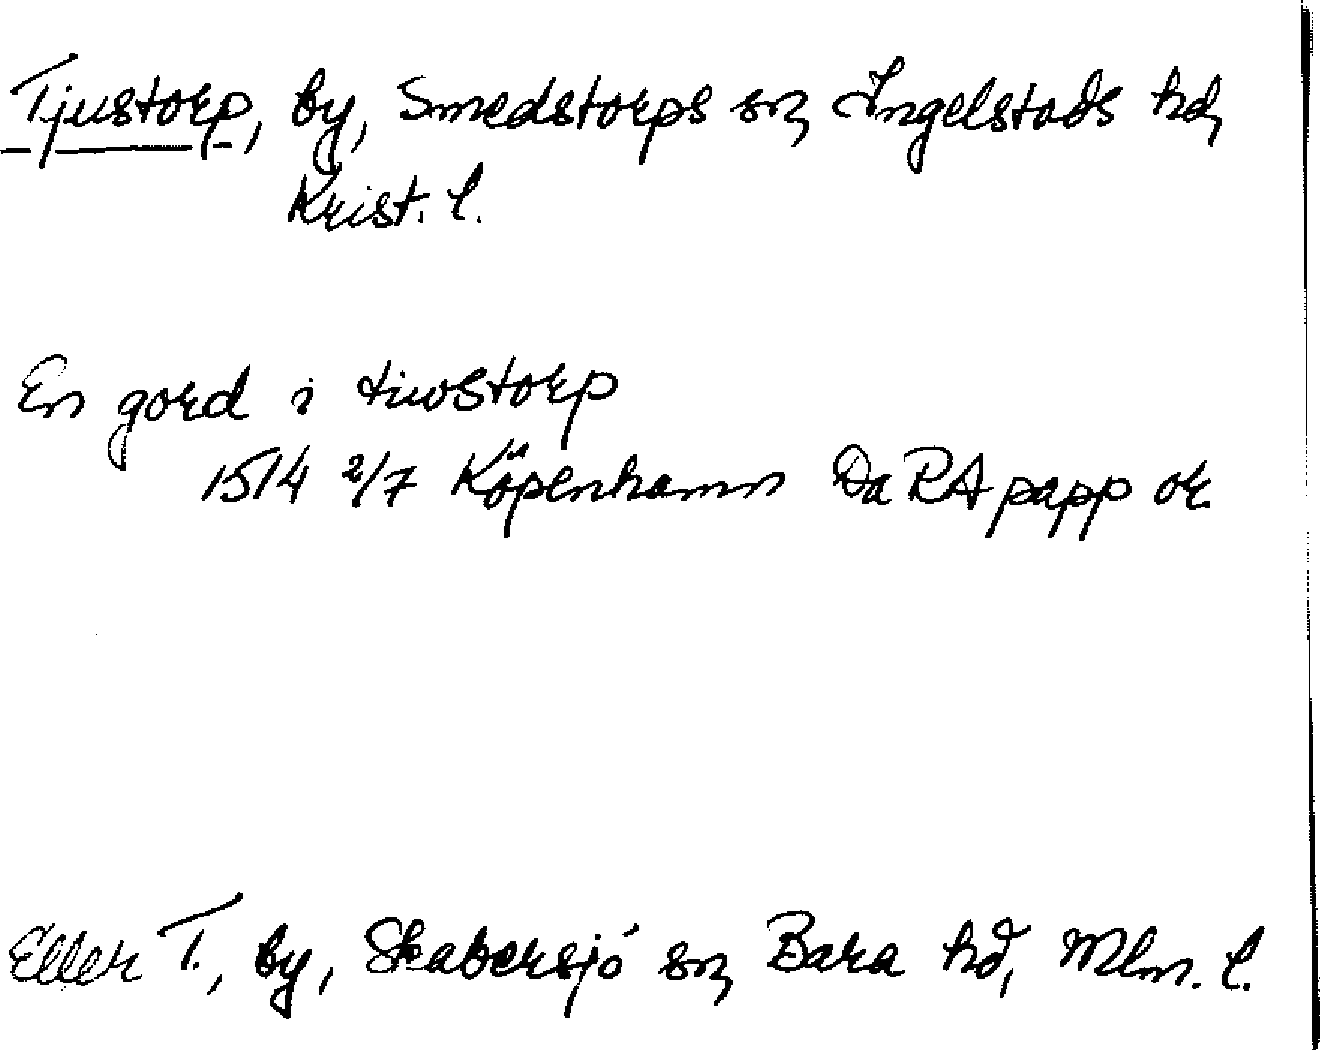 Tjustorp, by, Smedstorps sn, Ingelstads hd,
Krist. l.
En gord i tiwstorp
1514 2/7 Köpenhamn Da RA papp or.
Eller T., by, Skabersjö sn, Bara hd, Mlm. l.